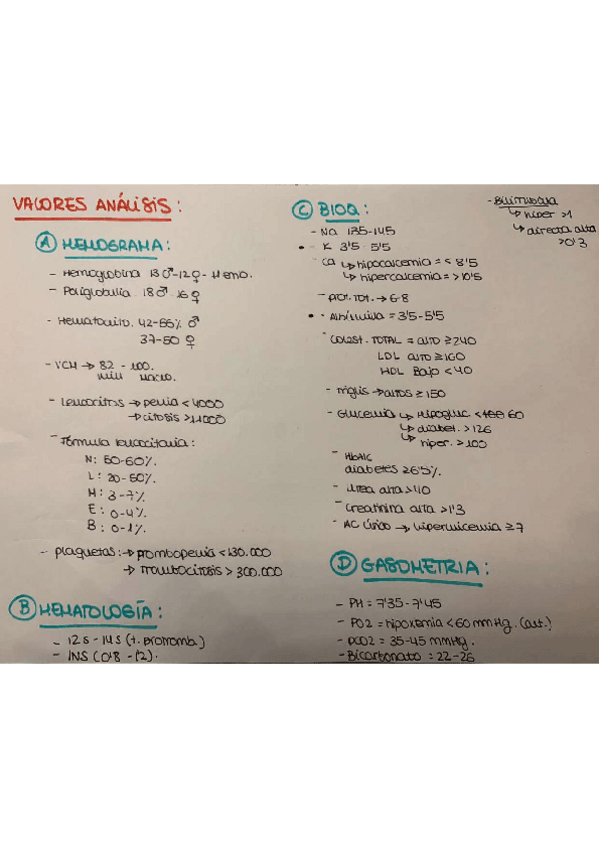 VALORES ANÁLISIS:
A HEMOGRAMA:
- Hemoglobina 13 ♂ - 12 ♀ - Hemo.
- Poliglobulia 18 ♂ 16 ♀
- Hematocrito. 42-55% ♂
37-50 ♀
- VCM → 82 - 100.
micro macro.
- Leucocitos → penia < 4000
→ citosis > 11000
- Fórmula leucocitaria:
N: 50-60%.
L: 20-50%.
M: 3-7%
E: 0-4%.
B: 0-1%.
- plaquetas: → trombopenia < 130.000
→ Trombocitosis > 300.000
B HEMATOLOGÍA:
- 12s - 14s (t. protromb.)
- INS (0'8 - 1'2).
C BIOQ:
- Na 135-145
- K 3'5 - 5'5
- Ca ↳ hipocalcemia = < 8'5
↳ hipercalcemia = > 10'5
- prot. tot. → 6-8
- Albúmina = 3'5-5'5
- Colest. TOTAL = alto ≥ 240
LDL alto ≥ 160
HDL Bajo < 40
- triglis → altos ≥ 150
- Glucemia ↳ Hipogluc < 60
↳ diabet. > 126
↳ hiper. > 100
- HbA1c
diabetes ≥ 6'5%.
- urea alta > 40
- Creatinina alta > 1'3
- AC Úrico → hiperuricemia ≥ 7
- Bilirrubina
↳ hiper > 1
↳ directa alta
> 0'3
D GASOMETRIA:
- PH = 7'35 - 7'45
- PO2 = hipoxemia < 60 mmHg. (art.)
- pCO2 = 35-45 mmHg.
- Bicarbonato = 22-26